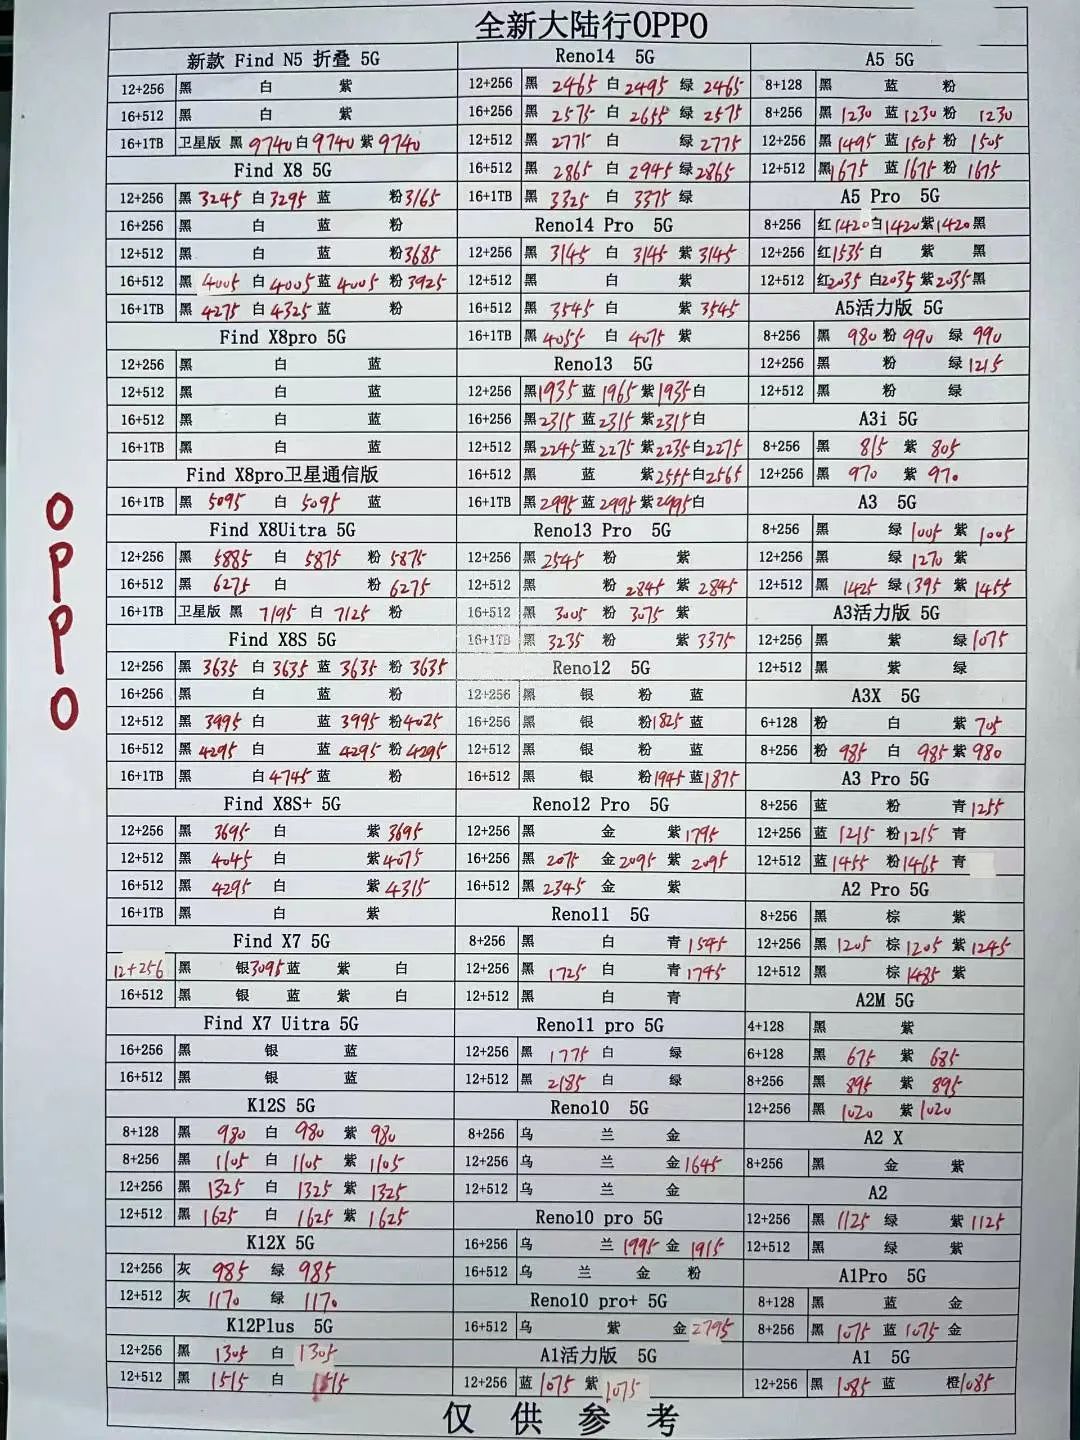 全新大陆行OPPO
OPPO
新款 Find N5 折叠 5G
12+256 黑 白 紫
16+512 黑 白 紫
16+1TB 卫星版 黑 9740 白 9740 紫 9740
Find X8 5G
12+256 黑 3245 白 3295 蓝 粉 3165
16+256 黑 白 蓝 粉
12+512 黑 白 蓝 粉 3685
16+512 黑 4005 白 4005 蓝 4005 粉 3925
16+1TB 黑 4275 白 4325 蓝 粉
Find X8pro 5G
12+256 黑 白 蓝
12+512 黑 白 蓝
16+512 黑 白 蓝
16+1TB 黑 白 蓝
Find X8pro卫星通信版
16+1TB 黑 5095 白 5095 蓝
Find X8Uitra 5G
12+256 黑 5885 白 5875 粉 5875
16+512 黑 6275 白 粉 6275
16+1TB 卫星版 黑 7195 白 7125 粉
Find X8S 5G
12+256 黑 3635 白 3635 蓝 3635 粉 3635
16+256 黑 白 蓝 粉
12+512 黑 3995 白 蓝 3995 粉 4025
16+512 黑 4295 白 蓝 4295 粉 4295
16+1TB 黑 白 4745 蓝 粉
Find X8S+ 5G
12+256 黑 3695 白 紫 3695
12+512 黑 4045 白 紫 4075
16+512 黑 4295 白 紫 4315
16+1TB 黑 白 紫
Find X7 5G
12+256 黑 银 3095 蓝 紫 白
16+512 黑 银 蓝 紫 白
Find X7 Uitra 5G
16+256 黑 银 蓝
16+512 黑 银 蓝
K12S 5G
8+128 黑 980 白 980 紫 980
8+256 黑 1105 白 1105 紫 1105
12+256 黑 1325 白 1325 紫 1325
12+512 黑 1625 白 1625 紫 1625
K12X 5G
12+256 灰 985 绿 985
12+512 灰 1170 绿 1170
K12Plus 5G
12+256 黑 1305 白 1305
12+512 黑 1515 白 1515
Reno14 5G
12+256 黑 2465 白 2495 绿 2465
16+256 黑 2575 白 2655 绿 2575
12+512 黑 2775 白 绿 2775
16+512 黑 2865 白 2945 绿 2865
16+1TB 黑 3325 白 3375 绿
Reno14 Pro 5G
12+256 黑 3145 白 3145 紫 3145
12+512 黑 白 紫
16+512 黑 3545 白 紫 3545
16+1TB 黑 4055 白 4075 紫
Reno13 5G
12+256 黑 1935 蓝 1965 紫 1935 白
16+256 黑 2315 蓝 2315 紫 2315 白
12+512 黑 2245 蓝 2275 紫 2235 白 2275
16+512 黑 蓝 紫 2555 白 2565
16+1TB 黑 2995 蓝 2995 紫 2995 白
Reno13 Pro 5G
12+256 黑 2545 粉 紫
12+512 黑 粉 2845 紫 2845
16+512 黑 3005 粉 3075 紫
16+1TB 黑 3235 粉 紫 3375
Reno12 5G
12+256 黑 银 粉 蓝
16+256 黑 银 粉 1825 蓝
12+512 黑 银 粉 蓝
16+512 黑 银 粉 1945 蓝 1875
Reno12 Pro 5G
12+256 黑 金 紫 1795
16+256 黑 2075 金 2095 紫 2095
16+512 黑 2345 金 紫
Reno11 5G
8+256 黑 白 青 1545
12+256 黑 1725 白 青 1745
12+512 黑 白 青
Reno11 pro 5G
12+256 黑 1775 白 绿
12+512 黑 2185 白 绿
Reno10 5G
8+256 乌 兰 金
12+256 乌 兰 金 1645
12+512 乌 兰 金
Reno10 pro 5G
16+256 乌 兰 1995 金 1915
16+512 乌 兰 金 粉
Reno10 pro+ 5G
16+512 乌 紫 金 2795
A1活力版 5G
12+256 蓝 1075 紫 1075
A5 5G
8+128 黑 蓝 粉
8+256 黑 1230 蓝 1230 粉 1230
12+256 黑 1495 蓝 1505 粉 1505
12+512 黑 1675 蓝 1675 粉 1675
A5 Pro 5G
8+256 红 1420 白 1420 紫 1420 黑
12+256 红 1535 白 紫 黑
12+512 红 2035 白 2035 紫 2035 黑
A5活力版 5G
8+256 黑 980 粉 990 绿 990
12+256 黑 粉 绿 1215
12+512 黑 粉 绿
A3i 5G
8+256 黑 815 紫 805
12+256 黑 970 紫 970
A3 5G
8+256 黑 绿 1005 紫 1005
12+256 黑 绿 1270 紫
12+512 黑 1425 绿 1395 紫 1455
A3活力版 5G
12+256 黑 紫 绿 1075
12+512 黑 紫 绿
A3X 5G
6+128 粉 白 紫 705
8+256 粉 985 白 985 紫 980
A3 Pro 5G
8+256 蓝 粉 青 1255
12+256 蓝 1215 粉 1215 青
12+512 蓝 1455 粉 1465 青
A2 Pro 5G
8+256 黑 棕 紫
12+256 黑 1205 棕 1205 紫 1245
12+512 黑 棕 1485 紫
A2M 5G
4+128 黑 紫
6+128 黑 675 紫 685
8+256 黑 895 紫 895
12+256 黑 1020 紫 1020
A2 X
8+256 黑 金 紫
A2
12+256 黑 1125 绿 紫 1125
12+512 黑 绿 紫
A1Pro 5G
8+128 黑 蓝 金
8+256 黑 1075 蓝 1075 金
A1 5G
12+256 黑 1085 蓝 橙 1085
仅供参考